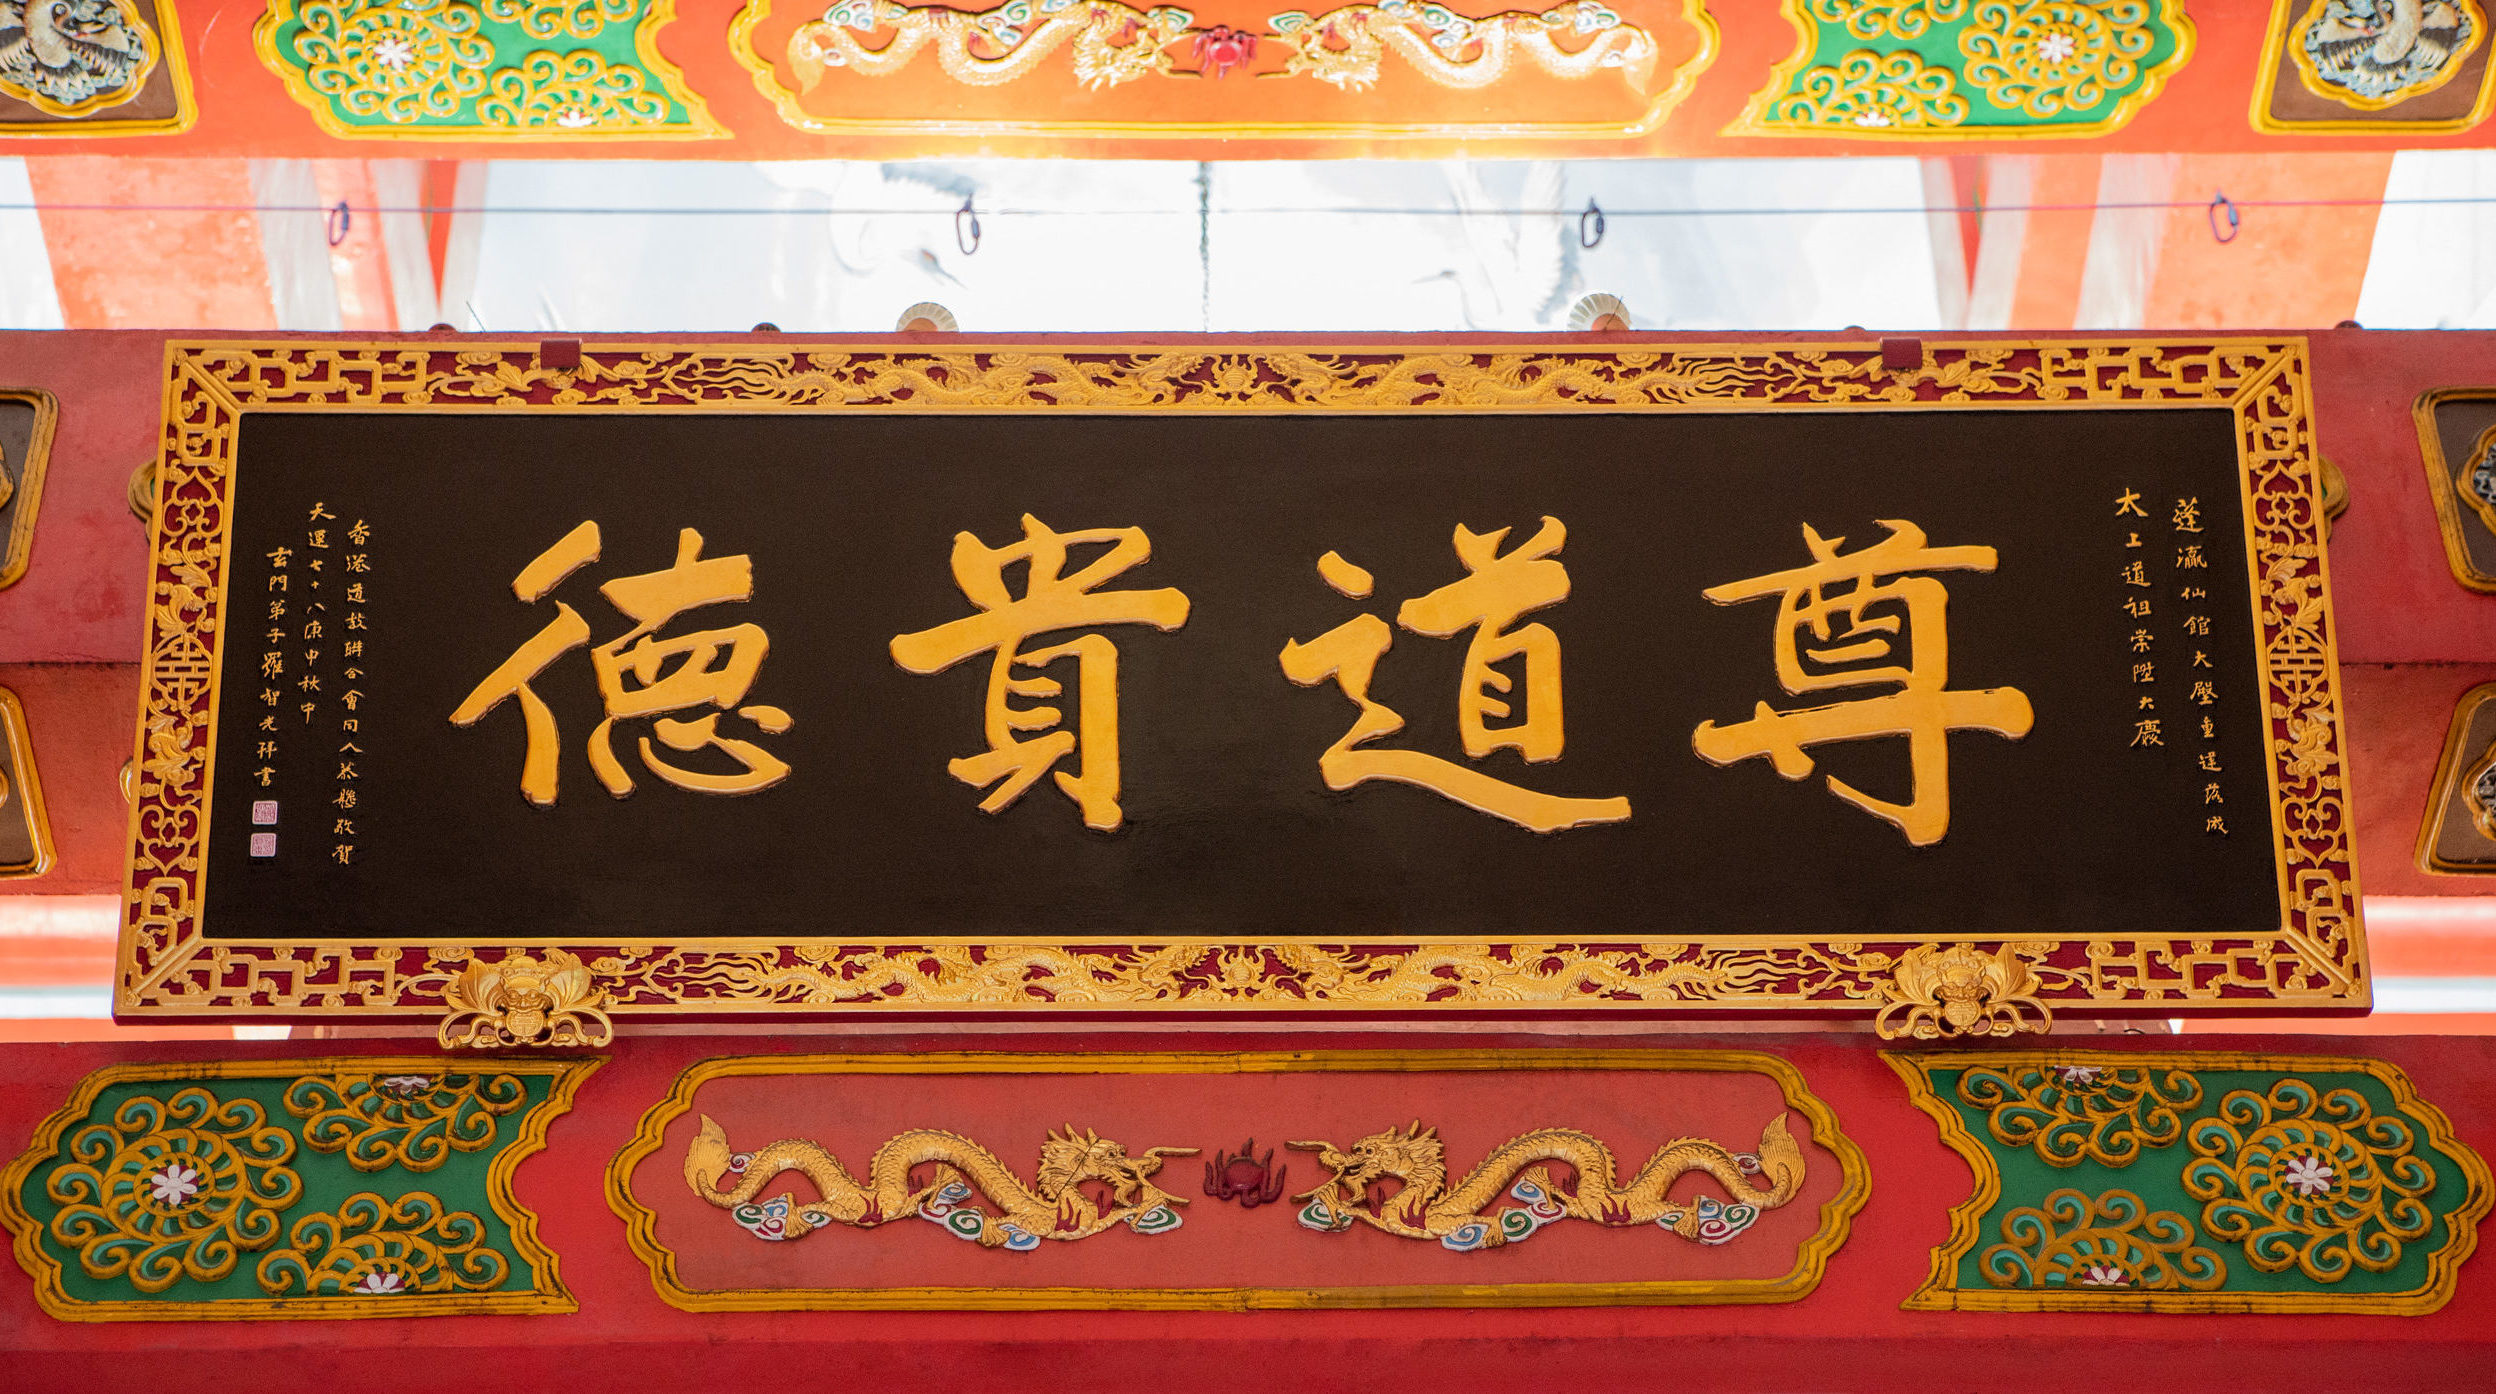 蓬瀛仙館大殿重建落成
太上道祖崇陞大慶
尊道貴德
香港道教聯合會同人恭
敬賀
天運七十八庚申秋中
玄門弟子羅智光拜書